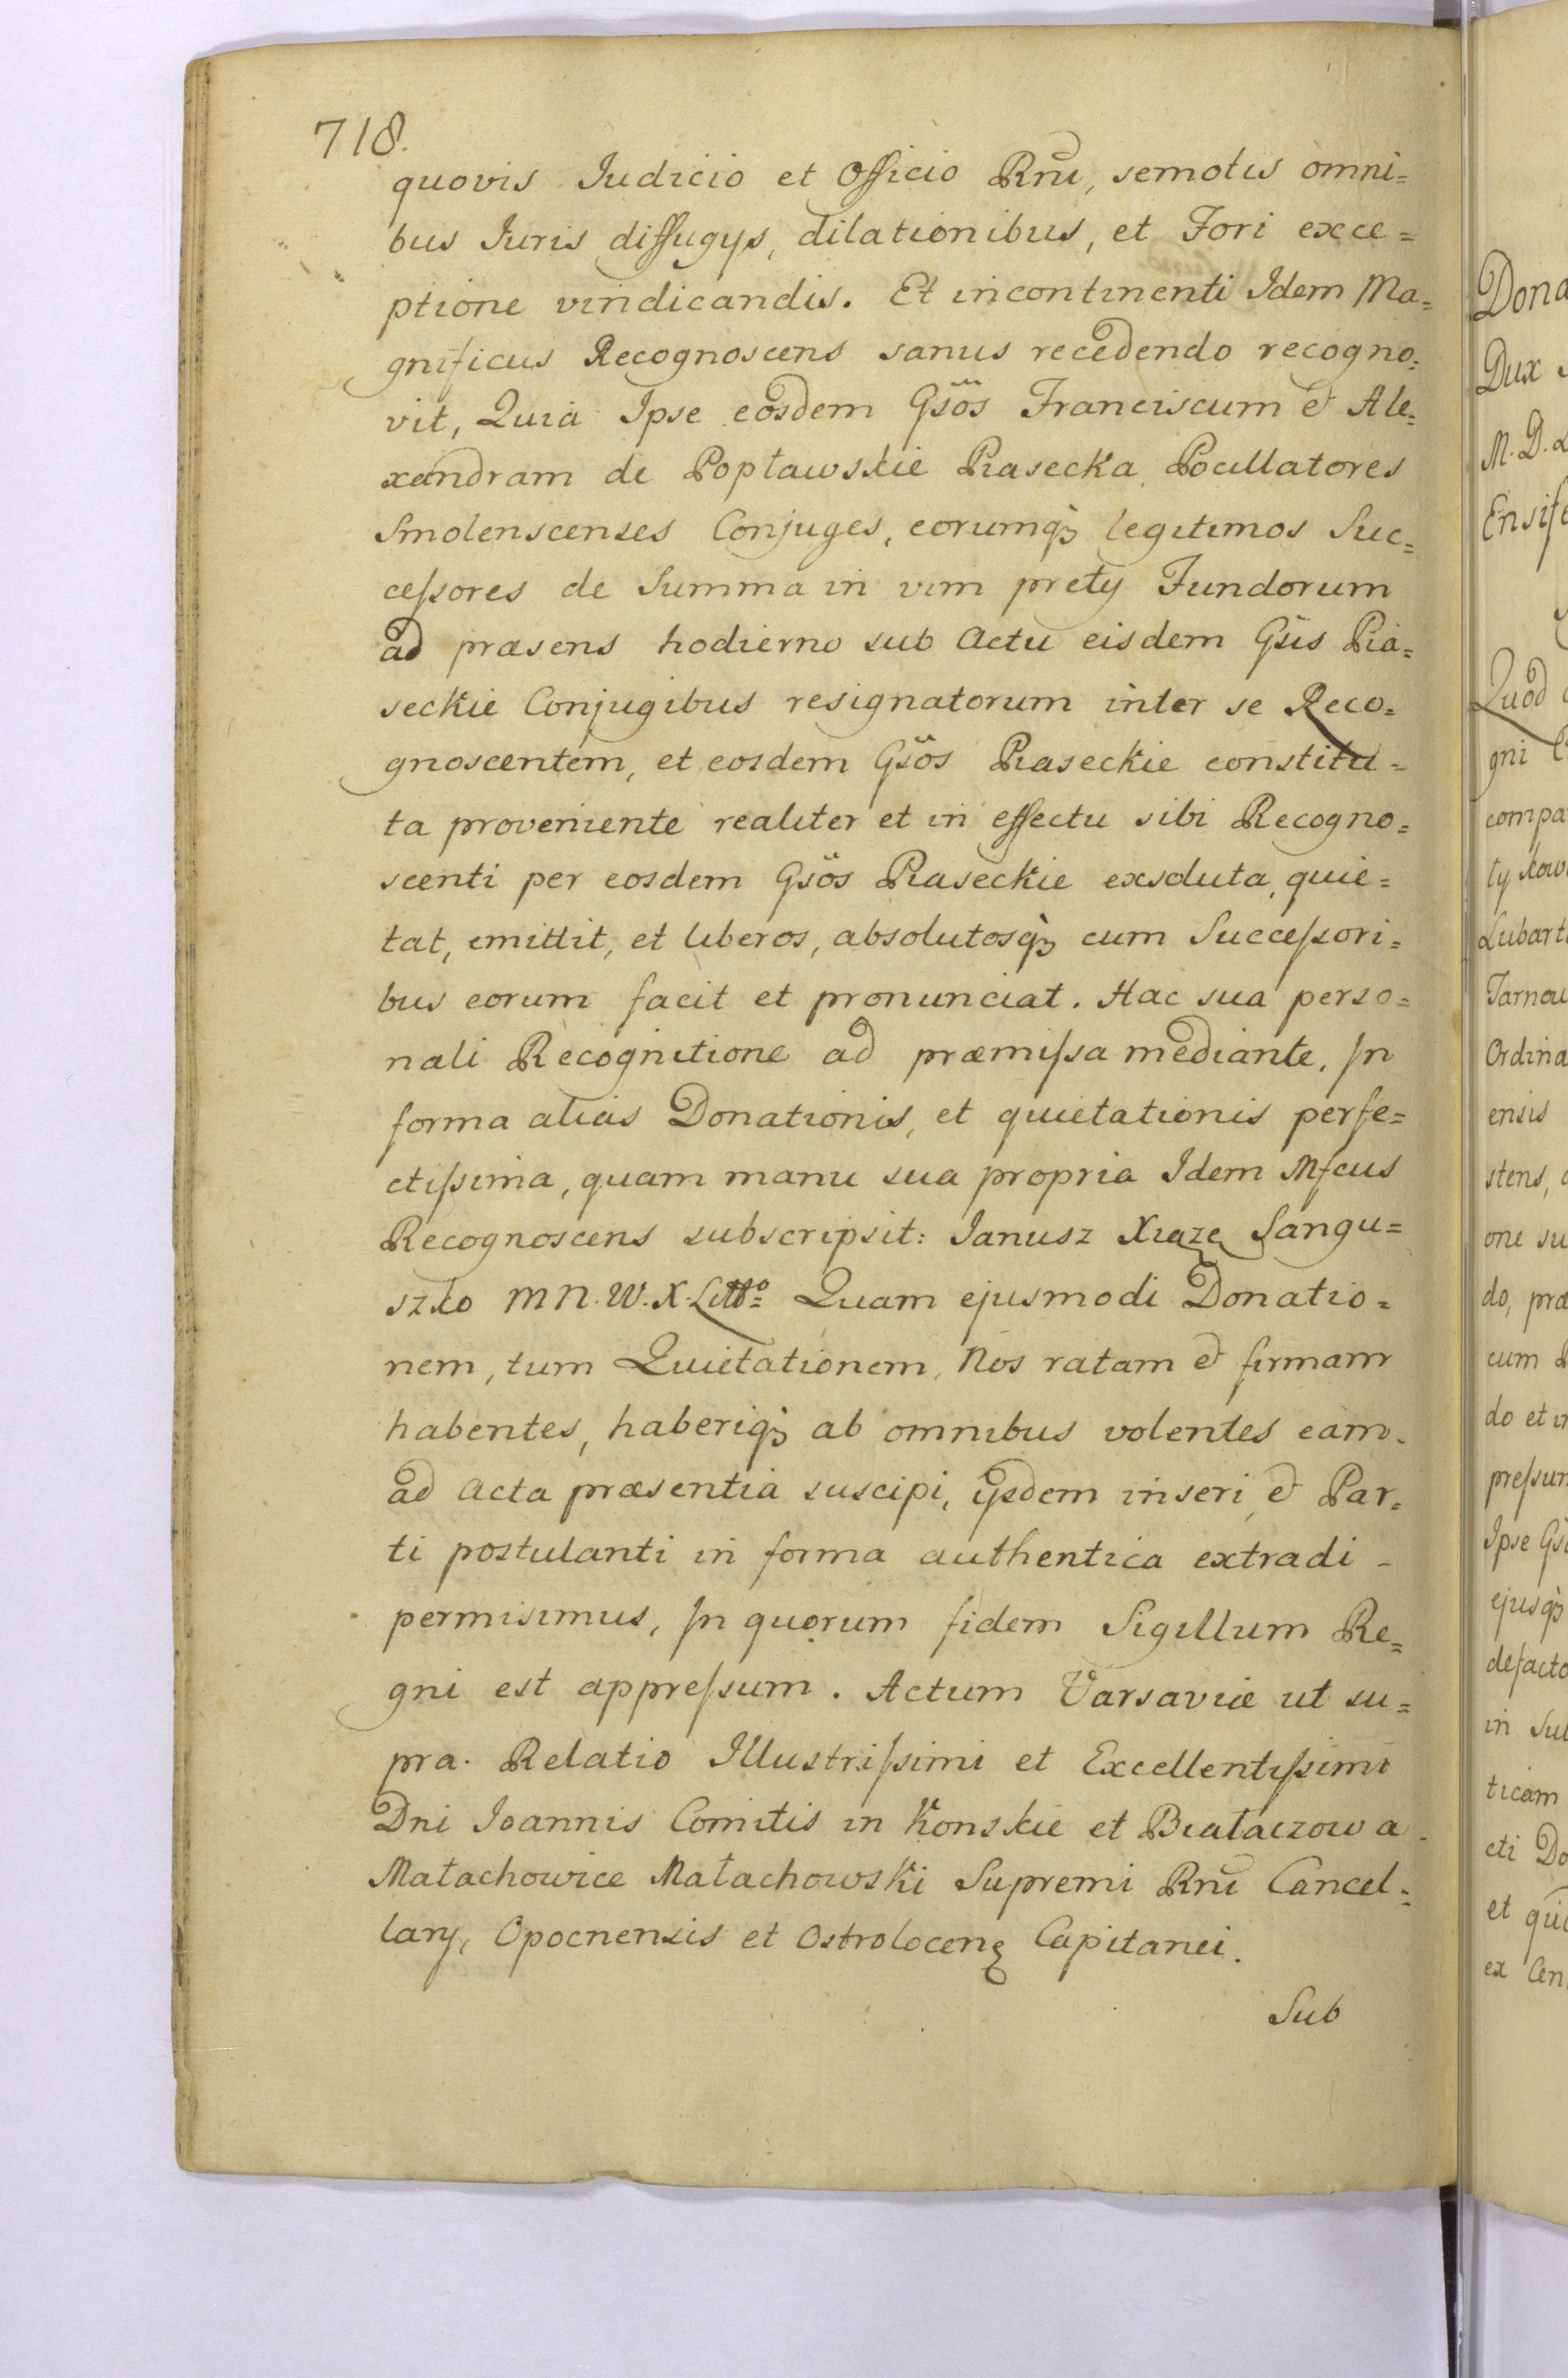 718.
quovis Judicio et Officio Rñi, semotis omni=
bus Juris diffugys, dilationibus, et Fori exce=
ptione vindicandis. Et incontinenti Idem Ma=
gnificus Recognoscens sanus recedendo recogno=
vit, Quia Ipse eosdem Gsös Franciscum & Ale=
xandram de Popławskie Piasecka, Pocillatores
Smolenscenses Conjuges, eorumqꝫ legitimos Suc=
ceſsores de Summa in vim prety Fundorum
ad præsens hodierno sub Actu eisdem Gsis Pia=
seckie Conjugibus resignatorum inter se Reco=
gnoscentem, et eosdem Gsös Piaseckie constitu=
ta proveniente realiter et in effectu sibi Recogno=
scenti per eosdem Gsös Piaseckie exsoluta, quie=
tat, emittit, et liberos, absolutosqꝫ cum Succeſsori=
bus eorum facit et pronunciat. Hac sua perso=
nali Recognitione ad præmiſsa mediante, In
forma alias Donationis, et quietationis perfe=
ctiſsima, quam manu sua propria Idem Mfcus
Recognoscens subscripsit: Janusz Xiąze Sangu=
szko M N. W. X. Litt°: Quam ejusmodi Donatio=
nem, tum Quietationem, Nos ratam & firmam
habentes, haberiqꝫ ab omnibus volentes eam.
ad Acta præsentia suscipi, ijsdem inseri, & Par=
ti postulanti in forma authentica extradi -
permisimus, In quorum fidem Sigillum Re=
gni est appreſsum. Actum Varsaviæ ut su=
pra. Relatio Illustriſsimi et Excellentiſsimi
Dni Joannis Comitis in Konskie et Białaczow a
Małachowice Małachowski Supremi Rñi Cancel=
lary, Opocnensis et Ostrolocenę Capitanei.
Sub
Dona
Dux
M. D.
Quod
gni
compa
ty
Lubart
Tarnow
Ordina
ensis
stens,
one su
do, præ
cum
do et in
preſsum
Ipse
ejusqꝫ
defacto
in Sub
ticam
cti Do
et qui
ex Cen